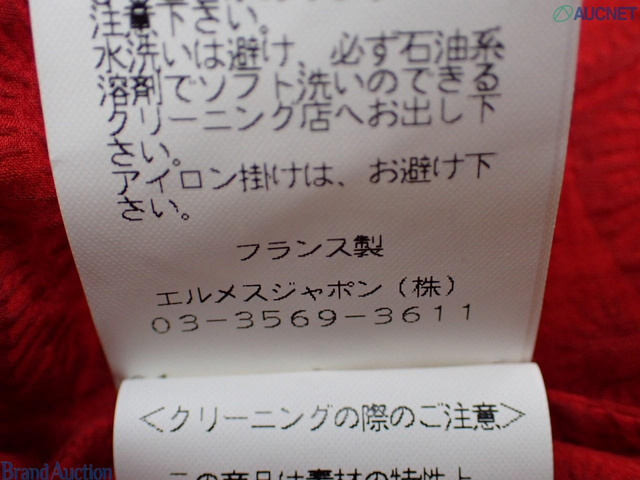 注意下さい。
水洗いは避け、必ず石油系
溶剤でソフト洗いのできる
クリーニング店へお出し下
さい。
アイロン掛けは、お避け下
さい。
フランス製
エルメスジャポン（株）
03-3569-3611
＜クリーニングの際のご注意＞
この商品は素材の特性上
AUCNET
Brand Auction